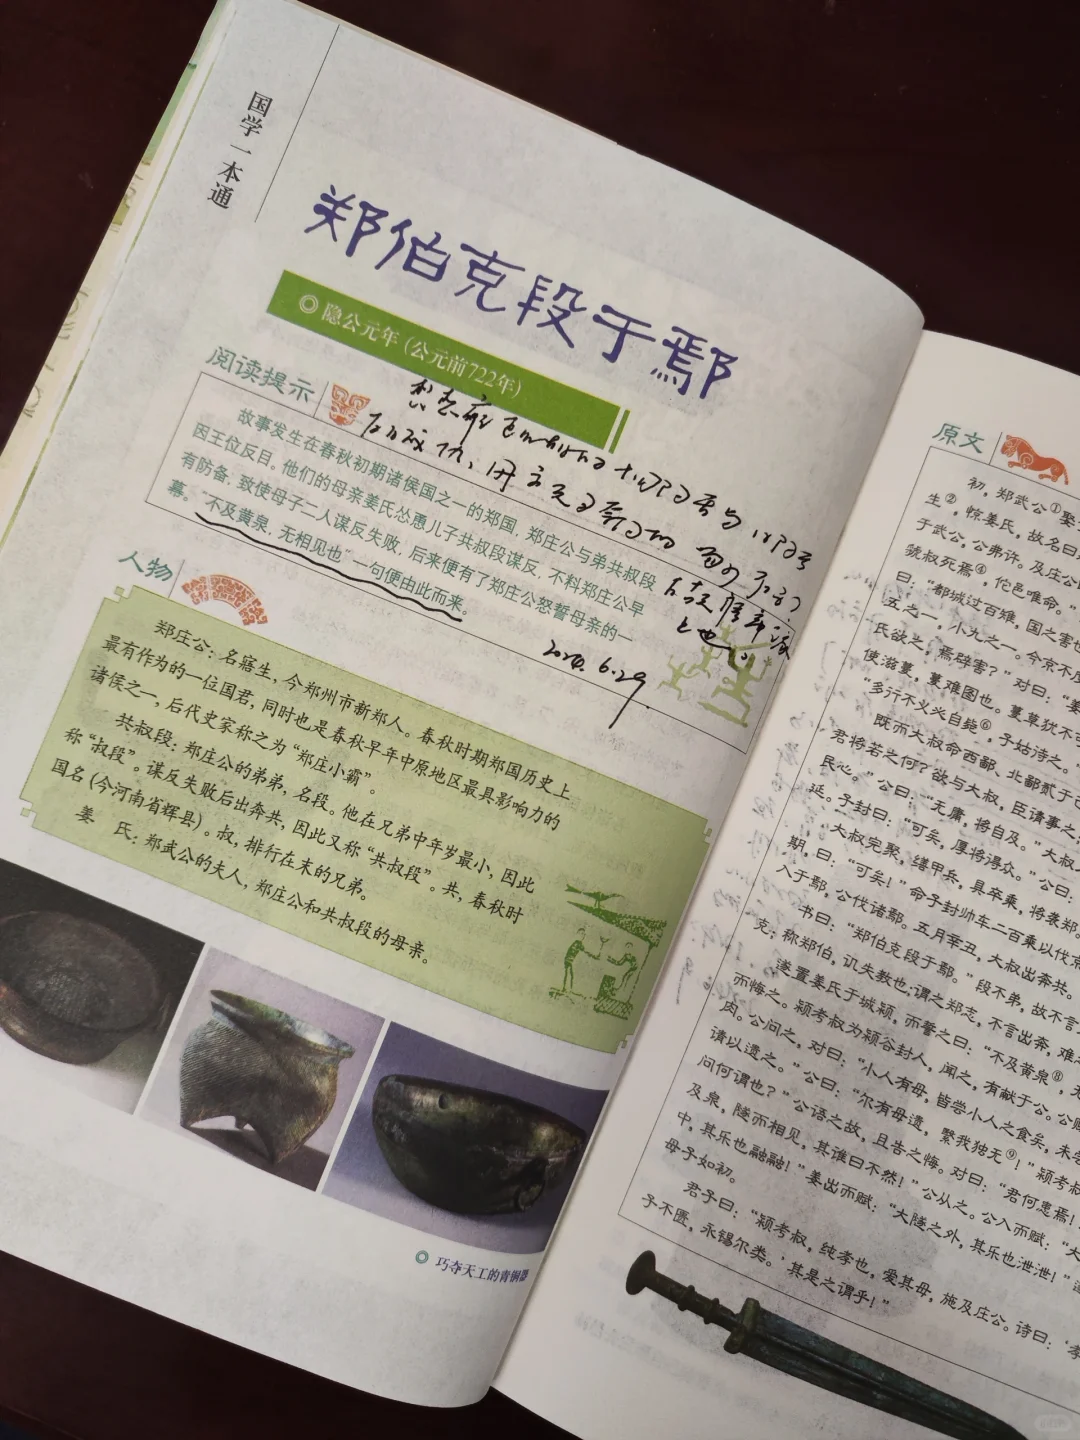 国学一本通
郑伯克段于鄢
◎ 隐公元年(公元前722年)
阅读提示
故事发生在春秋初期诸侯国之一的郑国,郑庄公与弟共叔段
因王位反目。他们的母亲姜氏怂恿儿子共叔段谋反,不料郑庄公早
有防备,致使母子二人谋反失败,后来便有了郑庄公怒誓母亲的一
幕。“不及黄泉,无相见也”一句便由此而来。
2024.6.29
人物
郑庄公:名寤生,今郑州市新郑人。春秋时期郑国历史上
最有作为的一位国君,同时也是春秋早年中原地区最具影响力的
诸侯之一,后代史家称之为“郑庄小霸”。
共叔段:郑庄公的弟弟,名段。他在兄弟中年岁最小,因此
称“叔段”。谋反失败后出奔共,因此又称“共叔段”。共,春秋时
国名(今河南省辉县)。叔,排行在末的兄弟。
姜 氏:郑武公的夫人,郑庄公和共叔段的母亲。
◎ 巧夺天工的青铜器
原文
初,郑武公①娶
生②,惊姜氏,故名曰
于武公,公弗许。及庄公
虢叔死焉④,佗邑唯命。”
曰:“都城过百雉,国之害也
五之一,小九之一。今京不度
氏欲之,焉辟害?”对曰:“姜
使滋蔓,蔓难图也。蔓草犹不
“多行不义必自毙⑥,子姑待之。”
既而大叔命西鄙、北鄙贰于己
君将若之何?欲与大叔,臣请事之;
民心。”公曰:“无庸,将自及。”大叔
延。子封曰:“可矣,厚将得众。”公曰:
大叔完聚,缮甲兵,具卒乘,将袭郑。
期,曰:“可矣!”命子封帅车二百乘以伐京
入于鄢,公伐诸鄢。五月辛丑,大叔出奔共。
书曰:“郑伯克段于鄢。”段不弟,故不言
克;称郑伯,讥失教也;谓之郑志,不言出奔,难
遂置姜氏于城颍,而誓之曰:“不及黄泉⑧,无
而悔之。颍考叔为颍谷封人,闻之,有献于公。公
肉。公问之,对曰:“小人有母,皆尝小人之食矣,未
请以遗之。”公曰:“尔有母遗,繄我独无⑨!”颍考叔
问何谓也?”公语之故,且告之悔。对曰:“君何患焉!
及泉,隧而相见,其谁曰不然!”公从之。公入而赋:“大
中,其乐也融融!”姜出而赋:“大隧之外,其乐也泄泄!”
母子如初。
君子曰:“颍考叔,纯孝也,爱其母,施及庄公。诗曰:‘孝
子不匮,永锡尔类。’其是之谓乎!”